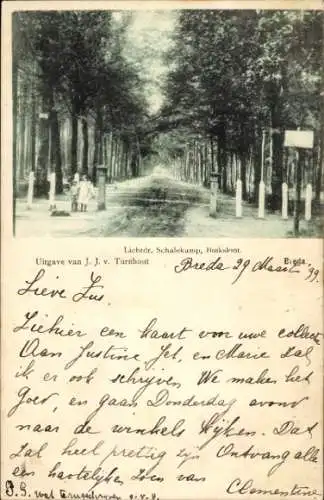 Lichtdr. Schalekamp, Buiksloot.
Uitgave van J. J. v. Turnhout
Breda.
Breda 29 Maart 99
Lieve Zus.
Hierbij een kaart voor uwe collectie
Aan Justine Jet, en Marie zal
ik er ook schrijven We maken het
Goed, en gaan Donderdag avond
naar de winkels kijken. Dat
zal heel prettig zijn Ontvang allen
een hartelijken zoen van
Clementine
P.S. wat